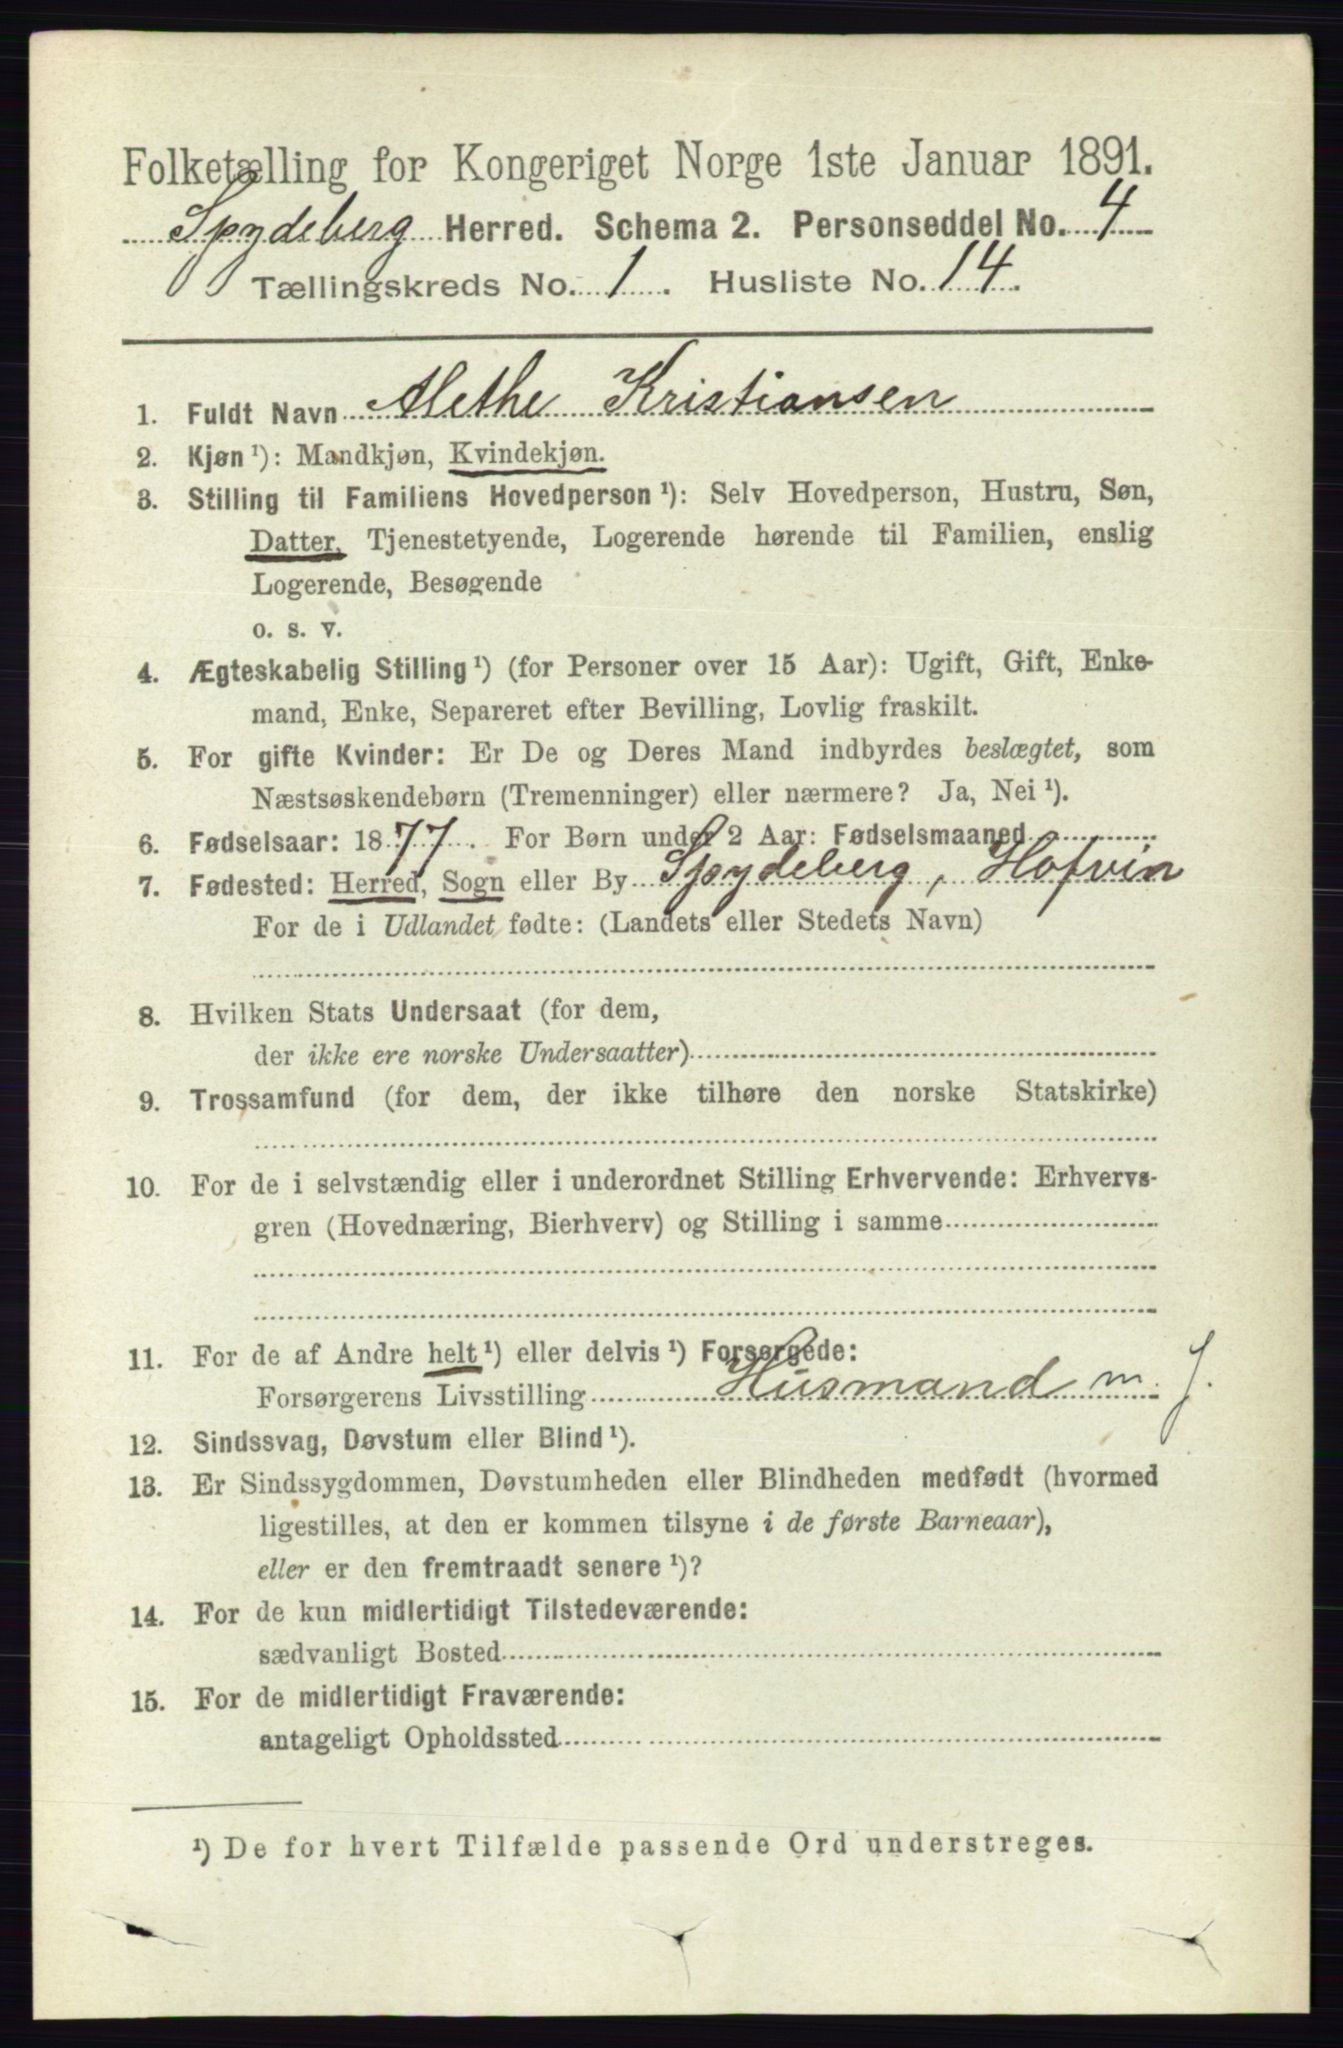 Folketælling for Kongeriget Norge 1ste Januar 1891.
Spydeberg Herred. Schema 2. Personseddel No. 4
Tællingskreds No. 1. Husliste No. 14.
1. Fuldt Navn Alethe Kristiansen
2. Kjøn ¹): Mandkjøn, Kvindekjøn.
3. Stilling til Familiens Hovedperson ¹): Selv Hovedperson, Hustru, Søn,
Datter, Tjenestetyende, Logerende hørende til Familien, enslig
Logerende, Besøgende
o. s. v.
4. Ægteskabelig Stilling ¹) (for Personer over 15 Aar): Ugift, Gift, Enke-
mand, Enke, Separeret efter Bevilling, Lovlig fraskilt.
5. For gifte Kvinder: Er De og Deres Mand indbyrdes beslægtet, som
Næstsøskendebørn (Tremenninger) eller nærmere? Ja, Nei ¹).
6. Fødselsaar: 1877. For Børn under 2 Aar: Fødselsmaaned
7. Fødested: Herred, Sogn eller By Spydeberg, Hofvin
For de i Udlandet fødte: (Landets eller Stedets Navn)
8. Hvilken Stats Undersaat (for dem,
der ikke ere norske Undersaatter)
9. Trossamfund (for dem, der ikke tilhøre den norske Statskirke)
10. For de i selvstændig eller i underordnet Stilling Erhvervende: Erhvervs-
gren (Hovednæring, Bierhverv) og Stilling i samme
11. For de af Andre helt ¹) eller delvis ¹) Forsørgede:
Forsørgerens Livsstilling Husmand m. J.
12. Sindssvag, Døvstum eller Blind ¹).
13. Er Sindssygdommen, Døvstumheden eller Blindheden medfødt (hvormed
ligestilles, at den er kommen tilsyne i de første Barneaar),
eller er den fremtraadt senere ¹)?
14. For de kun midlertidigt Tilstedeværende:
sædvanligt Bosted
15. For de midlertidigt Fraværende:
antageligt Opholdssted
¹) De for hvert Tilfælde passende Ord understreges.